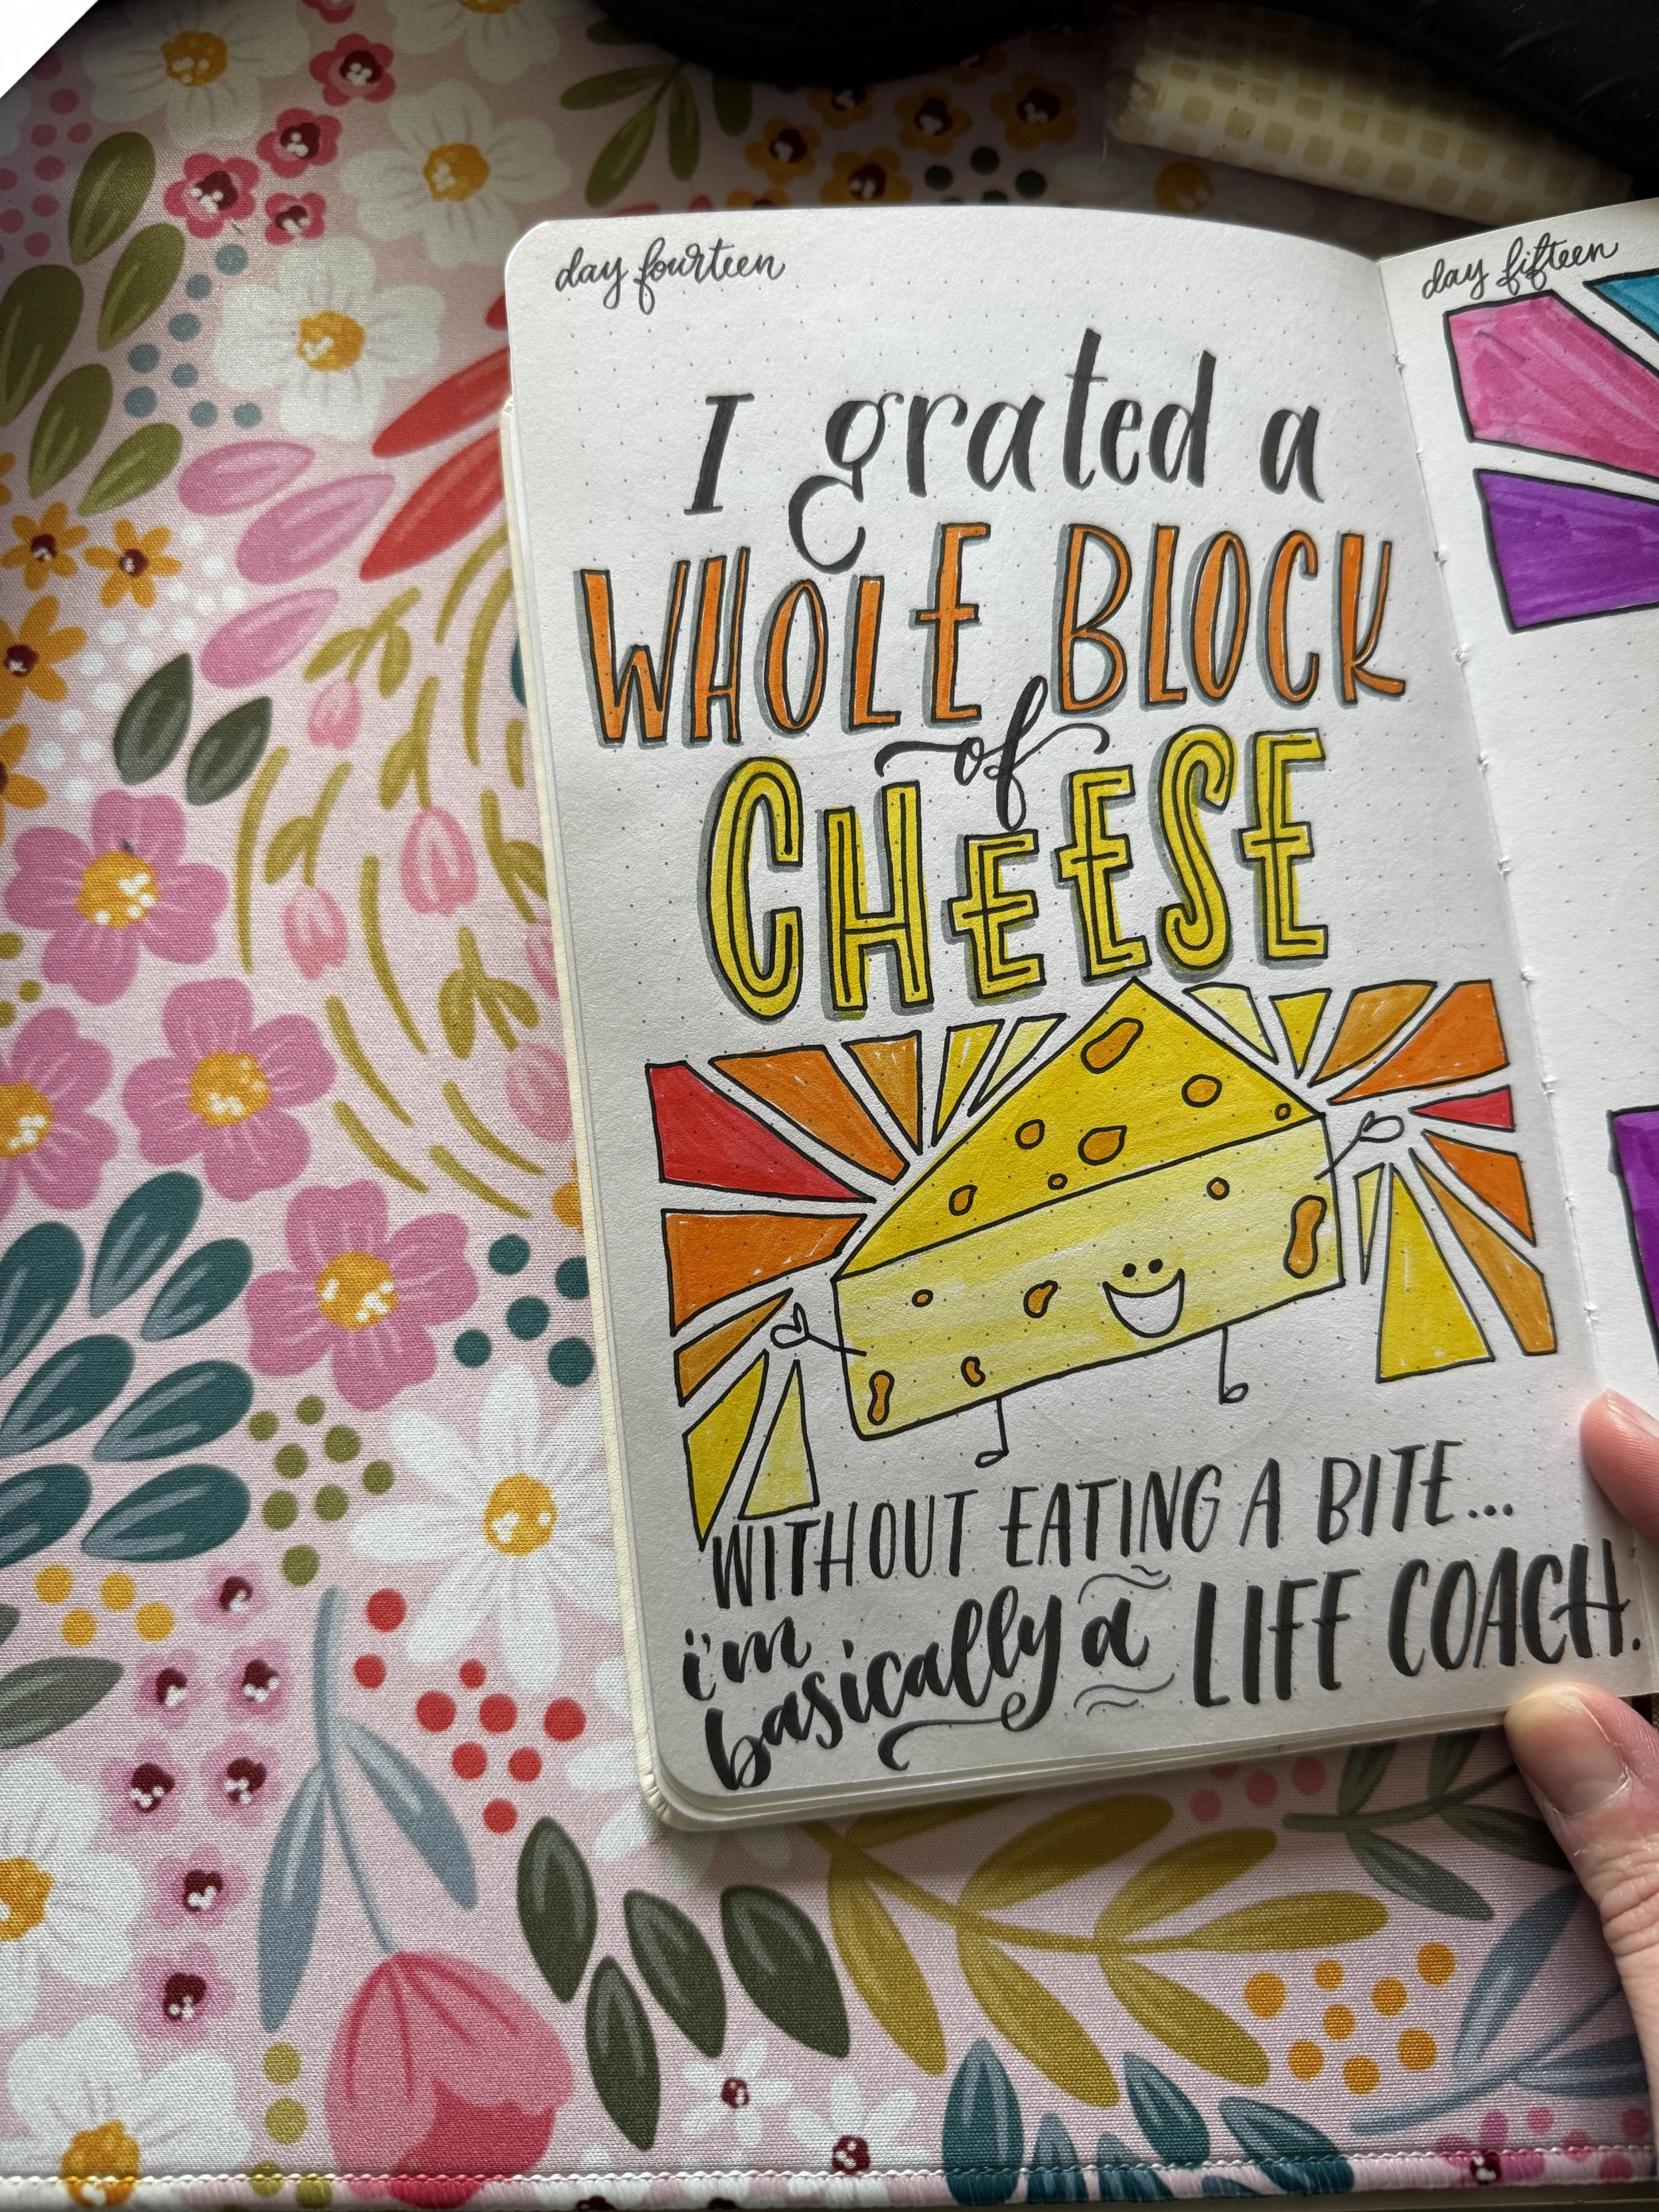 day fourteen
I grated a
WHOLE BLOCK
of
CHEESE
WITHOUT EATING A BITE...
i'm
basically a LIFE COACH.
day fifteen